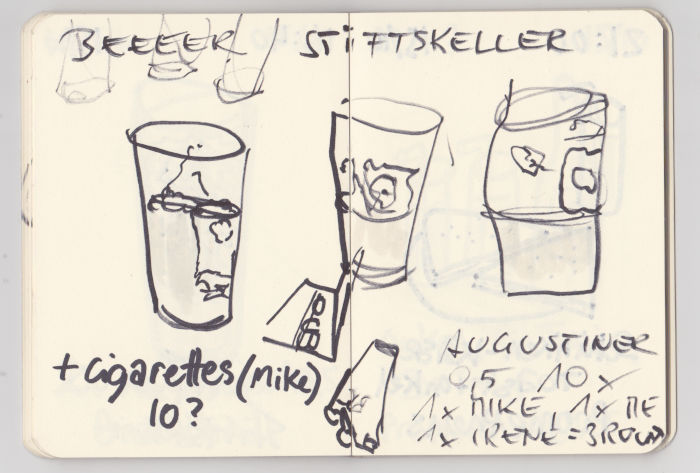 BEEEER STIFTSKELLER
+ cigarettes (Mike)
10?
AUGUSTINER
0,5 10 x
1x MIKE, 1x ME
1x IRENE =